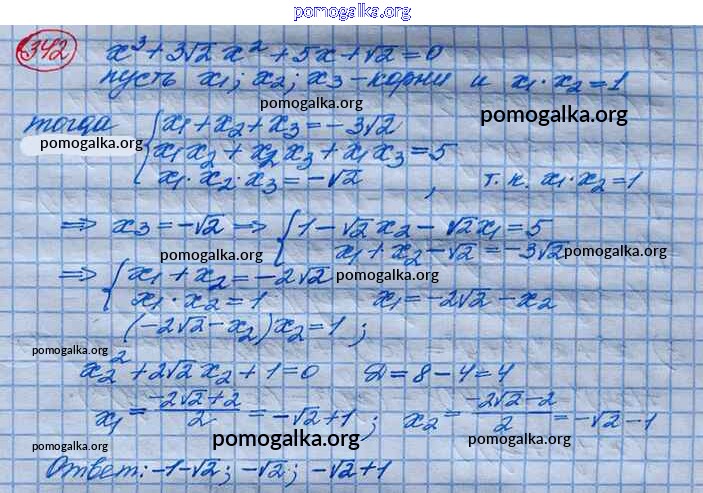 pomogalka.org
342
x³ + 3√2 x² + 5x + √2 = 0
пусть x₁; x₂; x₃ – корни и x₁ · x₂ = 1
pomogalka.org pomogalka.org
тогда { x₁ + x₂ + x₃ = -3√2
pomogalka.org
x₁x₂ + x₂x₃ + x₁x₃ = 5
x₁ · x₂ · x₃ = -√2 , т.к. x₁ · x₂ = 1
⇒ x₃ = -√2 ⇒ { 1 - √2 x₂ - √2 x₁ = 5
x₁ + x₂ - √2 = -3√2
pomogalka.org pomogalka.org
⇒ { x₁ + x₂ = -2√2
pomogalka.org
x₁ · x₂ = 1 x₁ = -2√2 - x₂
(-2√2 - x₂) x₂ = 1 ;
pomogalka.org
x₂² + 2√2 x₂ + 1 = 0 D = 8 - 4 = 4
x₁ = (-2√2 + 2)/2 = -√2 + 1 ; x₂ = (-2√2 - 2)/2 = -√2 - 1
pomogalka.org pomogalka.org pomogalka.org
Ответ: -1 - √2 ; -√2 ; -√2 + 1